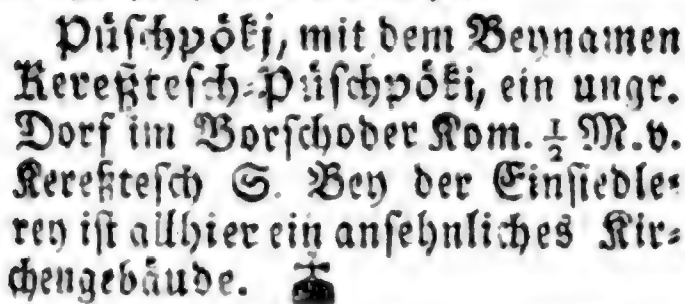 Püschpökj, mit dem Beynamen
Kereßtesch-Püschpöki, ein ungr.
Dorf im Borschoder Kom. ½ M. v.
Kereßtesch S. Bey der Einsiedle-
rey ist allhier ein ansehnliches Kir-
chengebäude.